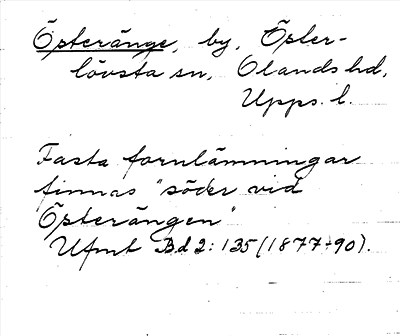 Österänge, by, Öster-
lövsta sn, Olands hd,
Upps. l.
Fasta fornlämningar
finnas "söder vid
Österängen"
Ufmt Bd 2: 135 (1877-90).